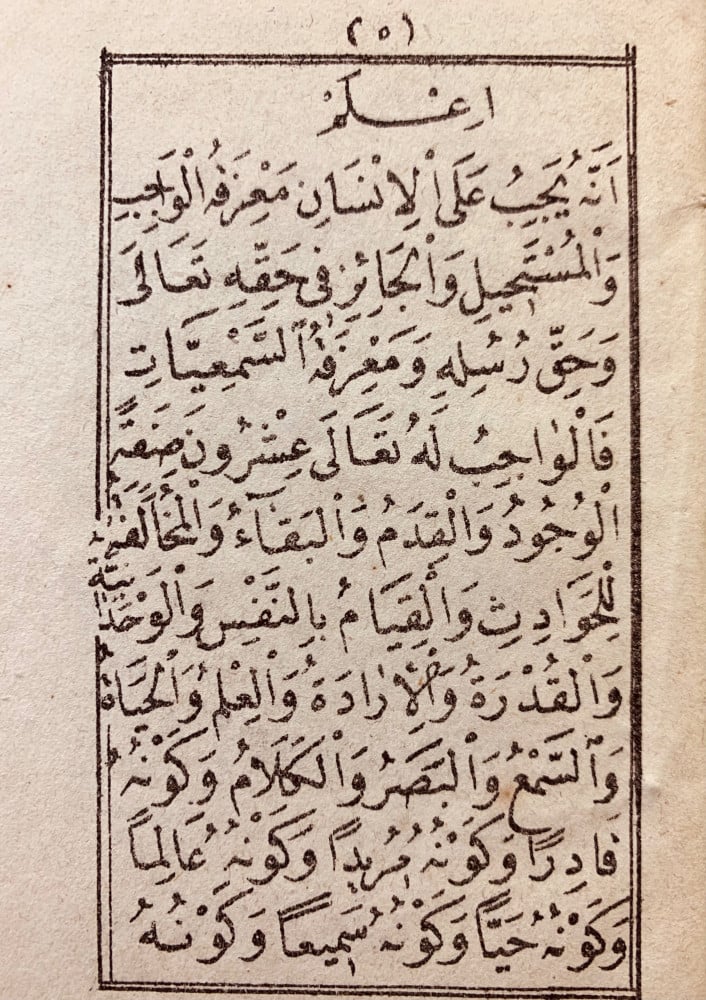 (٥)
اِعْلَمْ
اَنَّهُ يَجِبُ عَلَى الْاِنْسَانِ مَعْرِفَةُ الْوَاجِبِ
وَالْمُسْتَحِيلِ وَالْجَائِزِ فِى حَقِّهِ تَعَالَى
وَحَقِّ رُسُلِهِ وَمَعْرِفَةُ السَّمْعِيَّاتِ
فَالْوَاجِبُ لَهُ تَعَالَى عِشْرُونَ صِفَةً
الْوُجُودُ وَالْقِدَمُ وَالْبَقَآءُ وَالْمُخَالَفَةُ
لِلْحَوَادِثِ وَالْقِيَامُ بِالنَّفْسِ وَالْوَحْدَانِيَّةُ
وَالْقُدْرَةُ وَالْاِرَادَةُ وَالْعِلْمُ وَالْحَيَاةُ
وَالسَّمْعُ وَالْبَصَرُ وَالْكَلَامُ وَكَوْنُهُ
قَادِرًا وَكَوْنُهُ مُرِيدًا وَكَوْنُهُ عَالِمًا
وَكَوْنُهُ حَيًّا وَكَوْنُهُ سَمِيعًا وَكَوْنُهُ